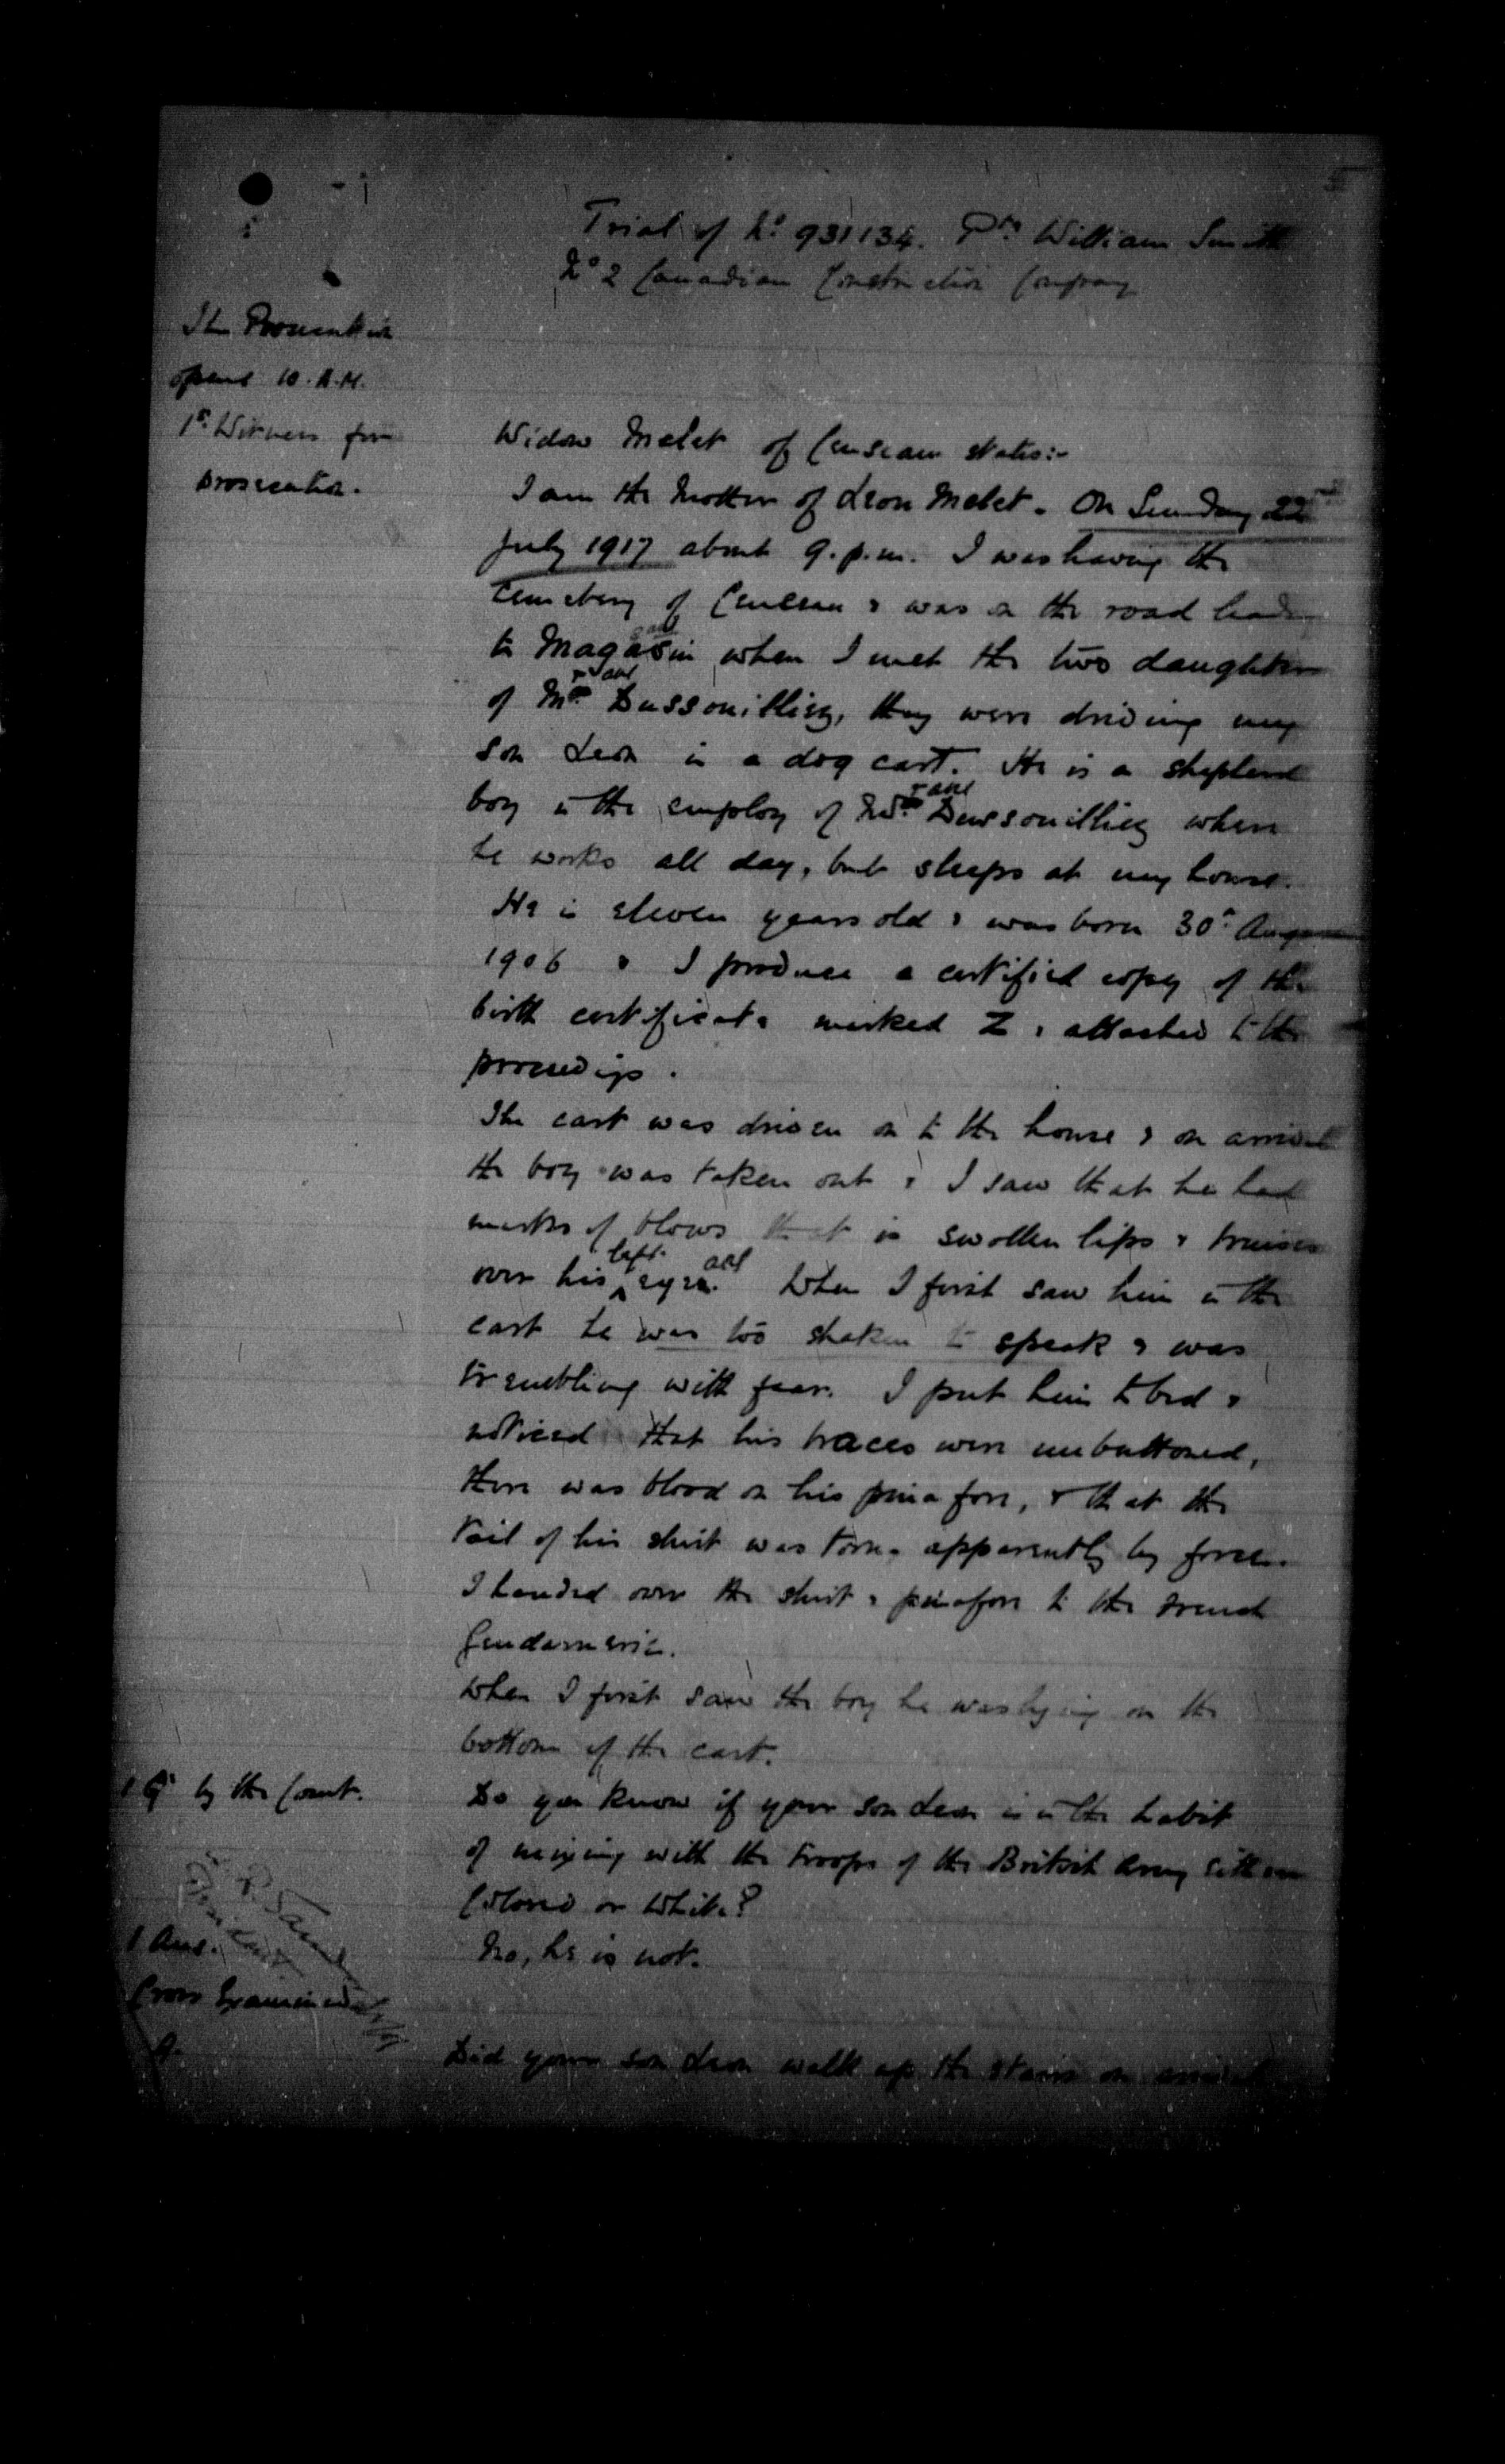 Trial of No 931134. Pte William Smith
No 2 Canadian Construction Company
The Prosecution
opens 10. A.M.
1st Witness for
prosecution.
Widow Melet of Censeau states:-
I am the Mother of Leon Melet. On Sunday 22nd
July 1917 about 9. p.m. I was leaving the
cemetery of Censeau & was on the road leading
to Magasin when I met the two daughters
of Mr. Dussouilliez, they were driving my
son Leon in a dog cart. He is a shepherd
boy in the employ of Mr. Dussouilliez where
he works all day, but sleeps at my house.
He is eleven years old & was born 30th August
1906 & I produce a certified copy of the
birth certificate marked Z & attached to the
proceedings.
The cart was driven on to the house & on arrival
the boy was taken out & I saw that he had
marks of blows that is swollen lips & bruises
over his left eye. When I first saw him in the
cart he was too shaken to speak & was
trembling with fear. I put him to bed &
noticed that his braces were unbuttoned,
there was blood on his pinafore, & that the
tail of his shirt was torn apparently by force.
I handed over the shirt & pinafore to the French
Gendarmerie.
When I first saw the boy he was lying on the
bottom of the cart.
1 Q. by the Court. Do you know if your son Leon is in the habit
of mixing with the troops of the British Army either
Colored or White?
1 Ans. No, he is not.
Cross Examined
Q. Did your son Leon walk up the stairs on arrival